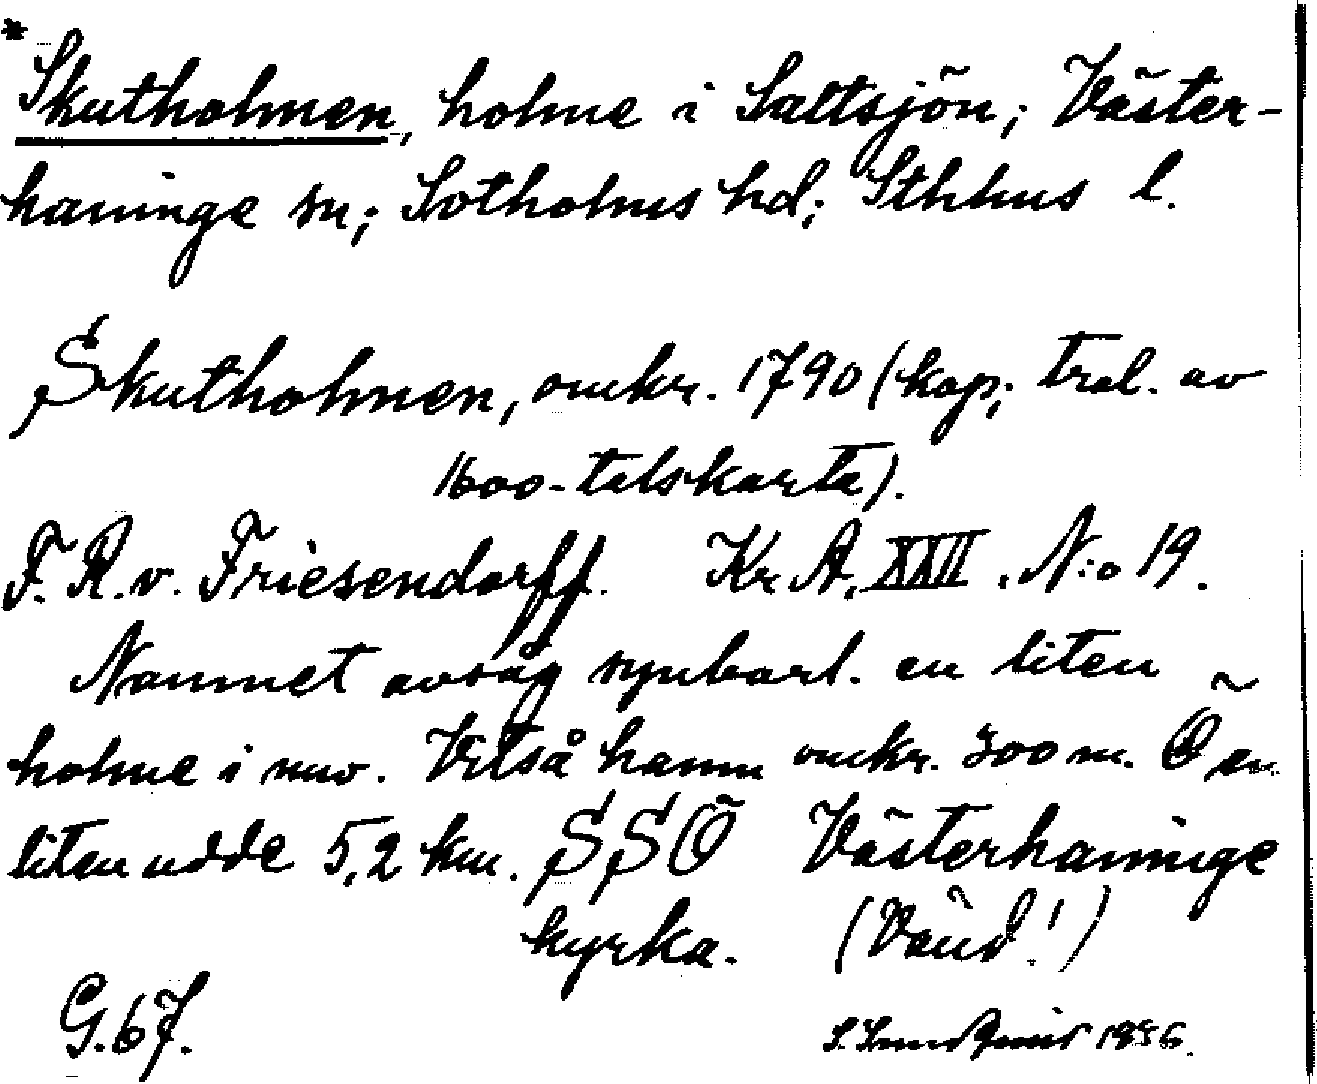 *
Skutholmen, holme i Saltsjön; Väster-
haninge sn; Sotholms hd; Sthlms l.
Skutholmen, omkr. 1790 (kop; trol. av
1600-talskarta).
F. R. v. Friesendorff. Kr. A. XXII. N:o 19.
Namnet avsåg synbarl. en liten
holme i nuv. Vitså hamn omkr. 300 m. Ö en
liten udde 5,2 km. SSÖ Västerhaninge
kyrka. (Vänd!)
G. 67.
S. Sundquist 1936.